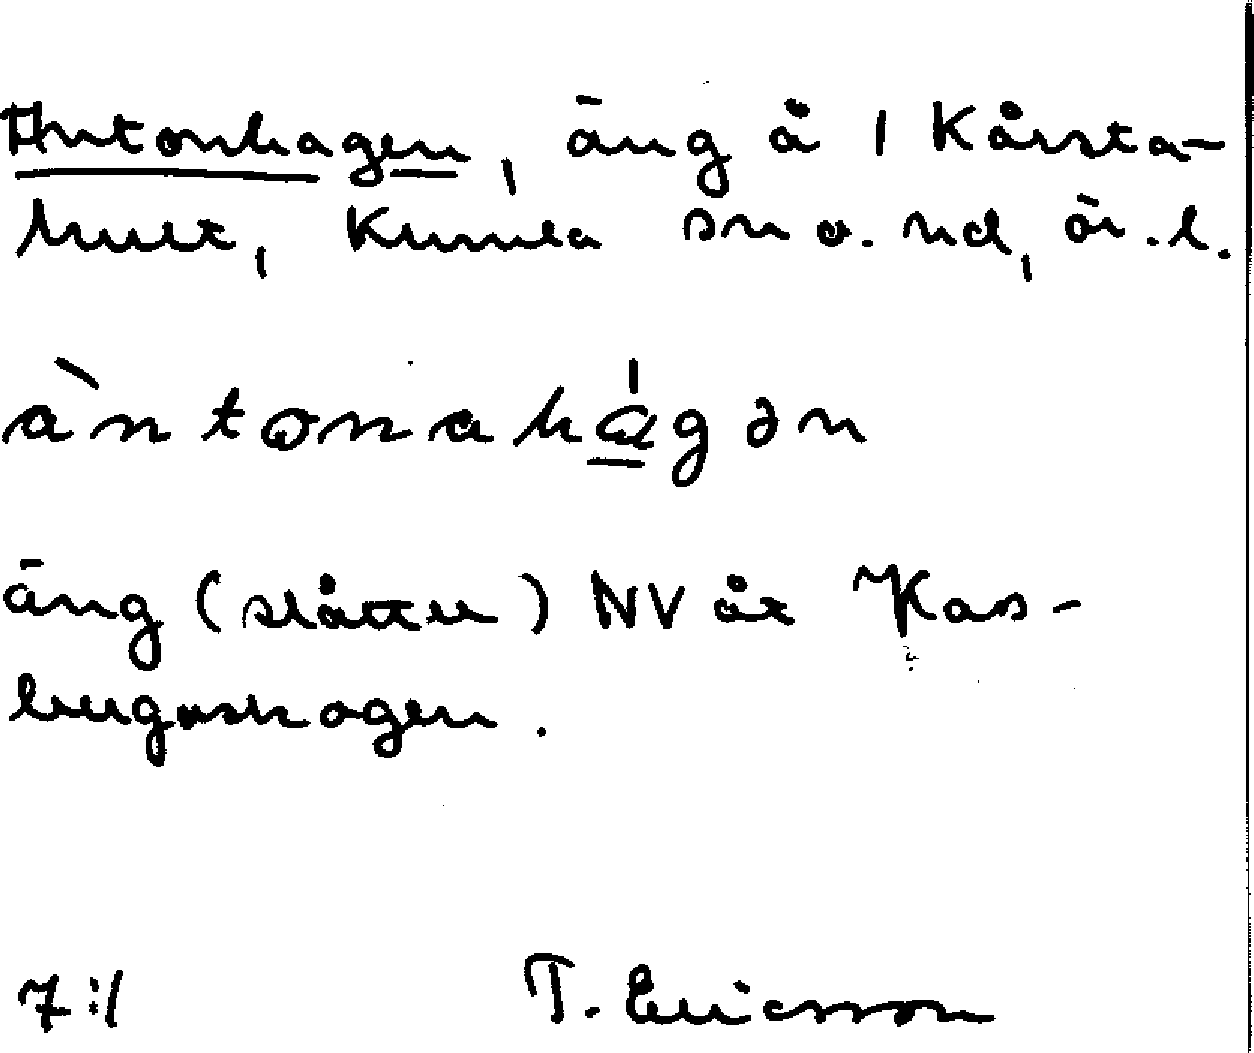 Antonhagen, äng å 1 Kårsta-
hult, Kumla sn o. hd, ör. l.
àntonahágən
äng (slåtter) NV åt Kas-
bergsskogen.
7:1 T. Ericsson